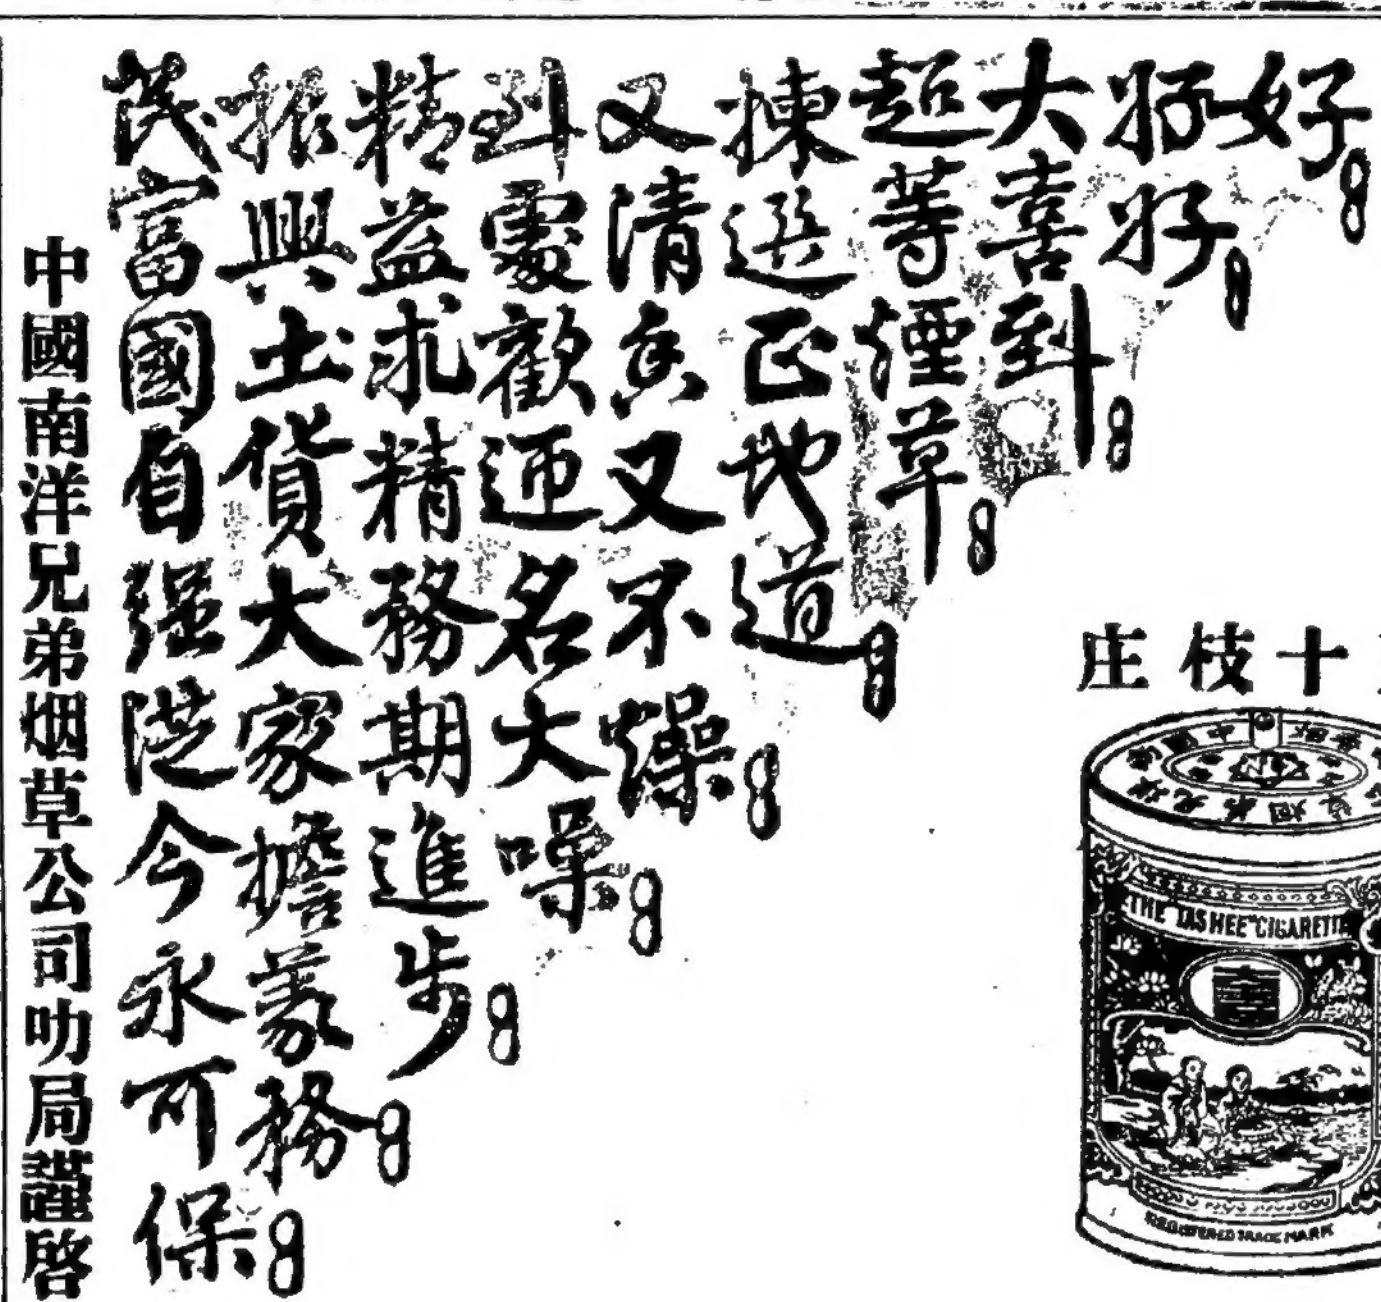 好
好好
大喜到
超等煙草
揀選正地道
又清香又不燥
到處歡迎名大噪
精益求精務期進步
振興土貨大家擔義務
民富國自强從今永可保
中國南洋兄弟烟草公司叻局謹啓
十枝庄
THE "TASHEE" CIGARETTE
REGISTERED TRADE MARK